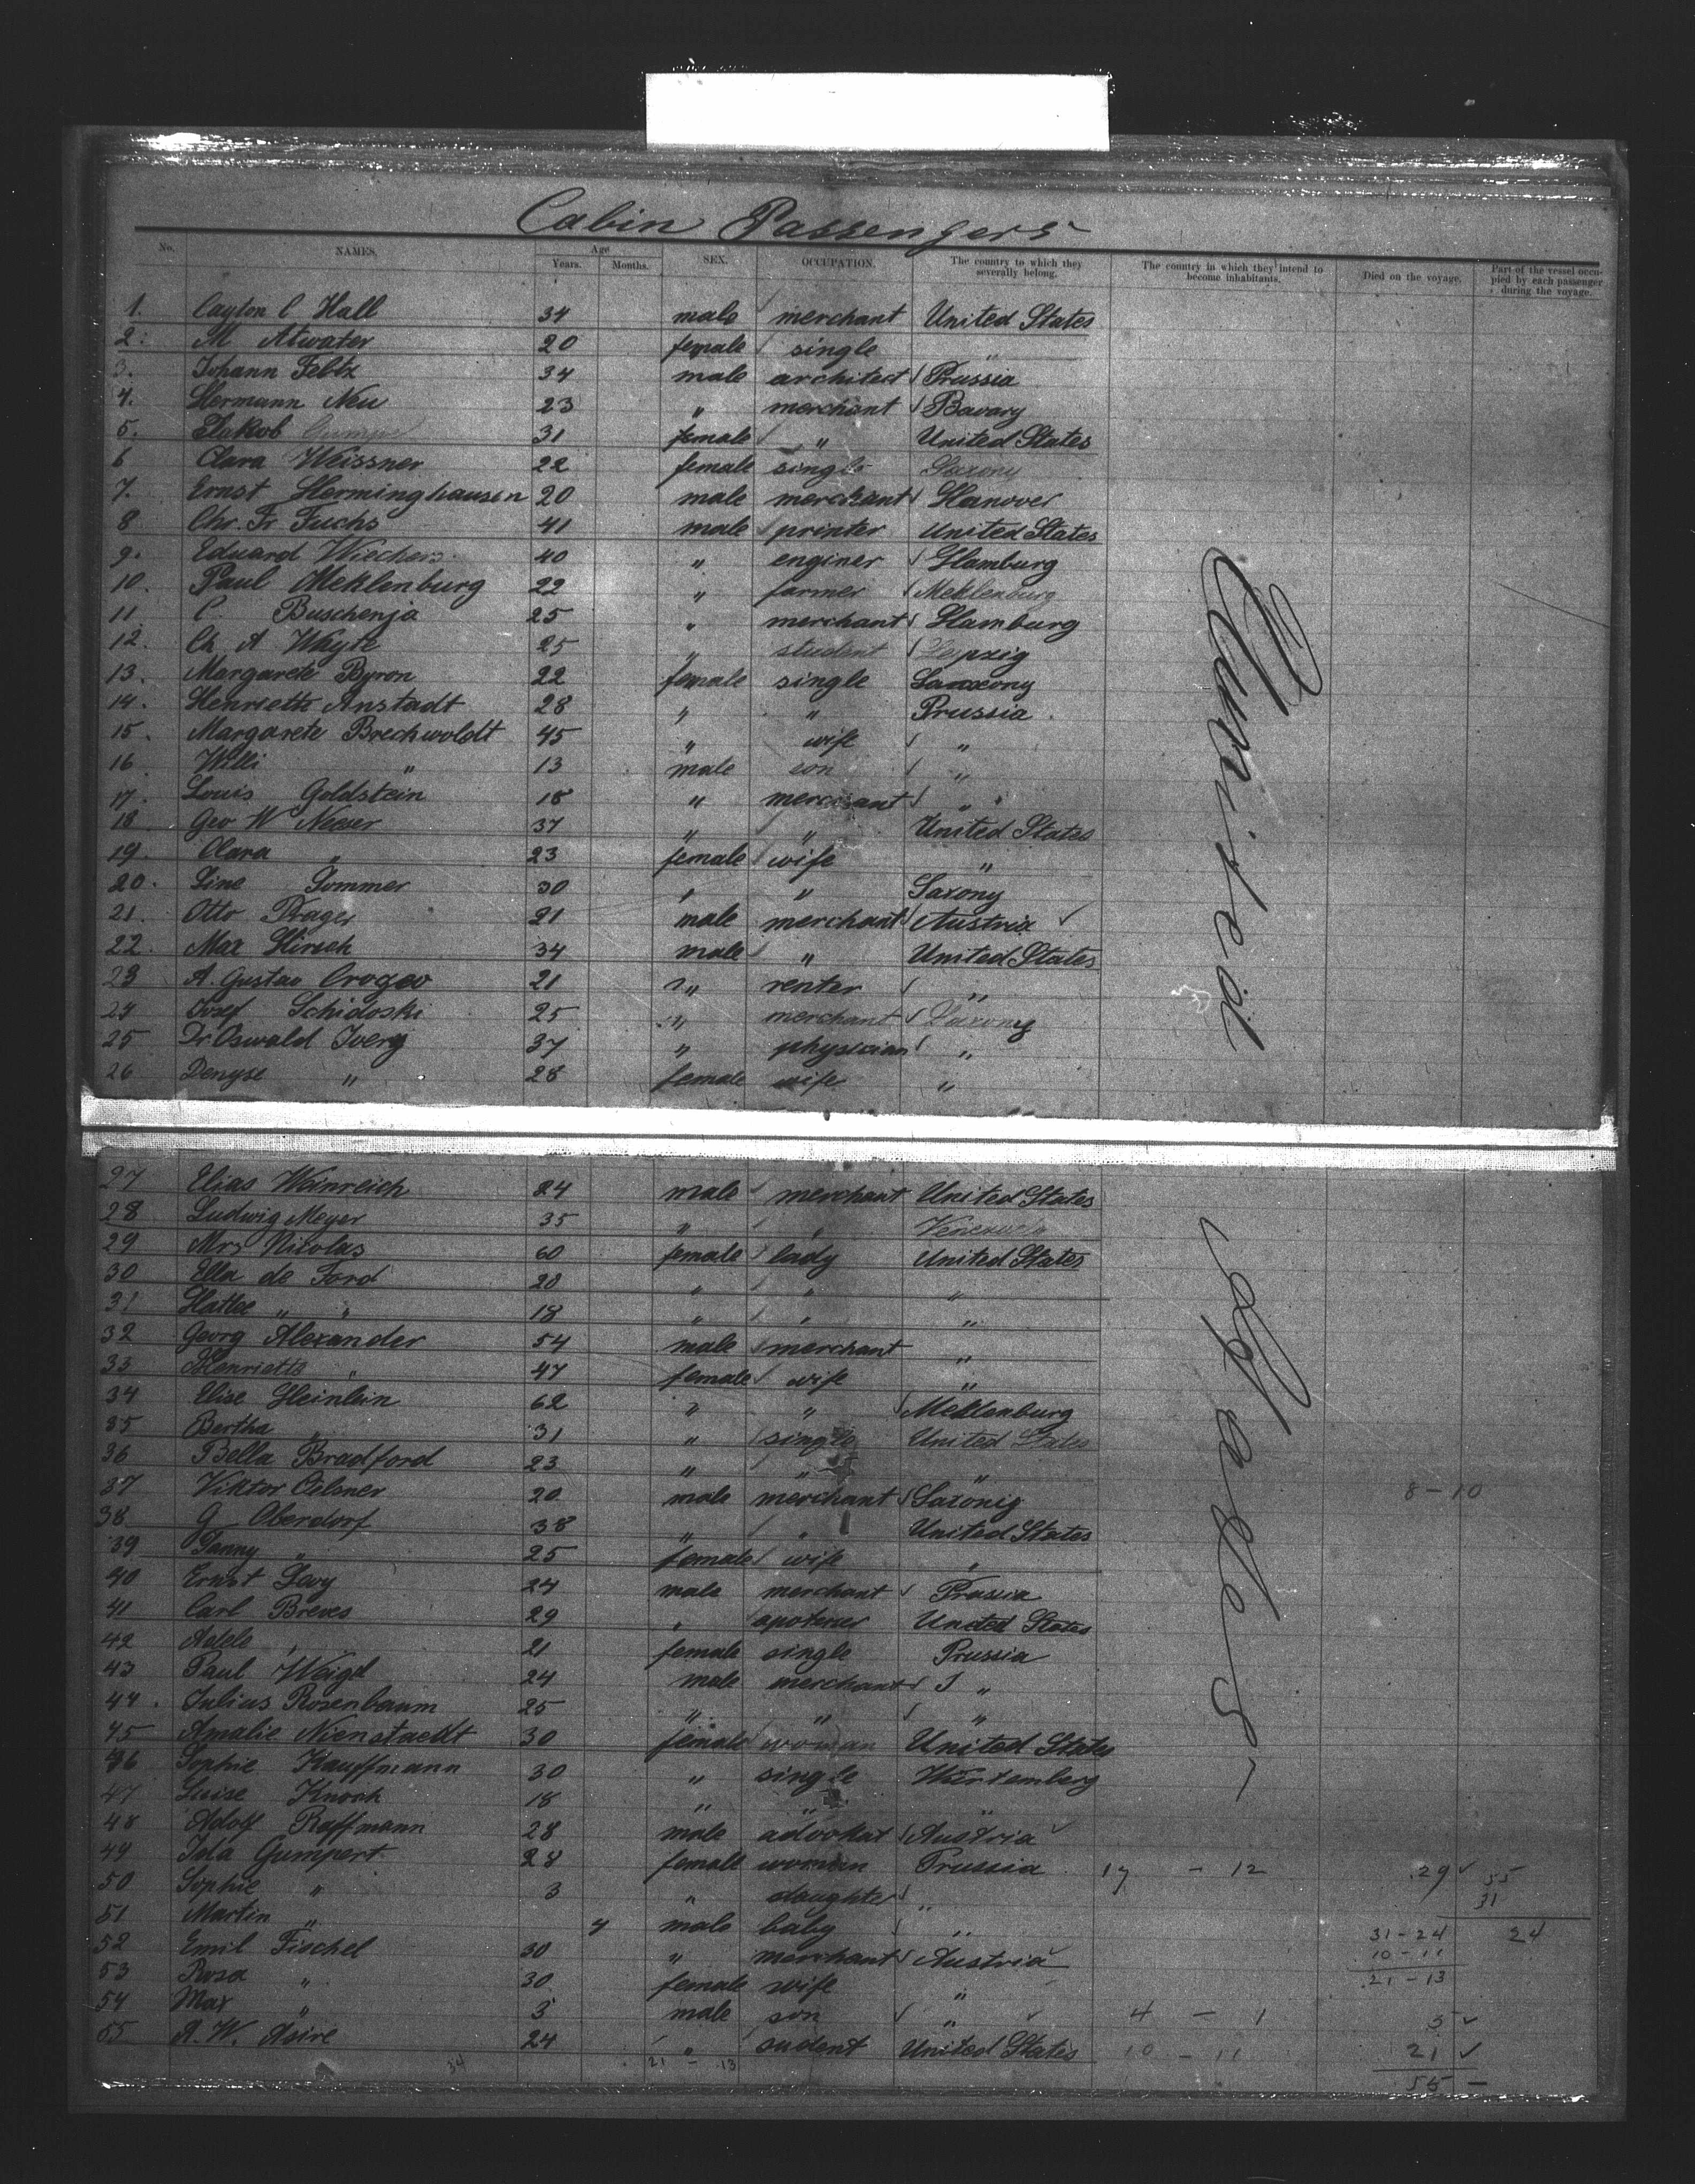 Cabin Passengers
No. NAMES. Age Years. Months. SEX. OCCUPATION. The country to which they severally belong. The country in which they intend to become inhabitants. Died on the voyage. Part of the vessel occupied by each passenger during the voyage.
1. Cayton C Hall 34 male merchant United States
2. M Atwater 20 female single "
3. Johann Feltz 34 male architect Prussia
4. Hermann Neu 23 " merchant Bavary
5. Jakob 31 female " United States
6 Clara Weissner 22 female single Saxony
7. Ernst Herminghausen 20 male merchant Hanover
8 Chr. Fr. Fuchs 41 male printer United States
9. Eduard Wiechers 40 " enginer Hamburg
10. Paul Meklenburg 22 " farmer Meklenburg
11 C Buschenja 25 " merchant Hamburg
12. Ch. A Whyte 25 " student Leipzig
13. Margarete Byron 22 female single Sanxony
14. Henriette Anstadt 28 " " Prussia
15. Margarete Brechwoldt 45 " wife "
16. Willi " 13 male son "
17. Louis Goldstein 18 " merchant "
18 Geo W Neeser 37 " " United States
19. Clara " 23 female wife "
20. Line Sommer 30 " " Saxony
21. Otto Prager 21 male merchant Austria
22. Max Hirsch 34 male " United States
23 A. Gustav Orozco 21 " renter "
24 Josef Schidoski 25 " merchant Saxony
25 Dr. Oswald Joerg 37 " physician "
26 Denyse " 28 female wife "
United
27 Elias Weinreich 24 male merchant United States
28 Ludwig Meyer 35 " " Venezuela
29 Mrs Nicolas 60 female lady United States
30 Ella de Ford 20 " " "
31 Hattee " " 18 " " "
32 Georg Alexander 54 male merchant "
33 Henriette " 47 female wife "
34 Elise Heinlein 62 " " Meklenburg
35 Bertha " 31 " single United States
36 Bella Bradford 23 " " "
37 Viktor Oelsner 20 male merchant Saxonig 8-10
38 G Oberdorf 38 " " United States
39 Fanny " 25 female wife "
40 Ernst Levy 24 male merchant Prussia
41 Carl Breves 29 " apoteker United States
42 Adele " 21 female single Prussia
43 Paul Weigel 24 male merchant "
44. Julius Rosenbaum 25 " " "
45 Amalie Nienstaedt 30 female woman United States
46 Sophie Kauffmann 30 " single Würtemberg
47 Luise Knorh 18 " " "
48 Adolf Raffmann 28 male advokat Austria
49 Ida Gumpert 28 female woman Prussia 17 - 12 29 55
50 Sophie " 3 " daughter " 31
51 Martin " 4 male baby " 31-24 24
52 Emil Fischel 30 " merchant Austria 10-11
53 Rosa " 30 female wife " 21-13
54 Max " 3 male son " 4 - 1 5
55 A. W. Asire 24 " sudent United States 10 - 11 21
34 21 - 13 55 -
States